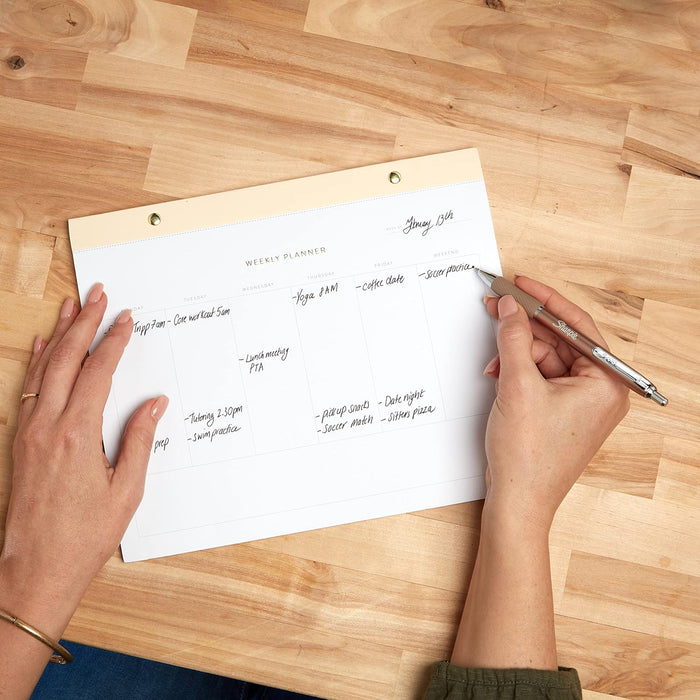 13th
WEEKLY PLANNER
TUESDAY
WEDNESDAY
THURSDAY
FRIDAY
WEEKEND
7am
- Core workout 5am
- Yoga 8AM
- coffee date
- Soccer practice
- Lunch meeting
PTA
prep
- Tutoring 2.30pm
- swim practice
- pick up snacks
- Soccer match
- Date night
- sitters pizza
Sharpie